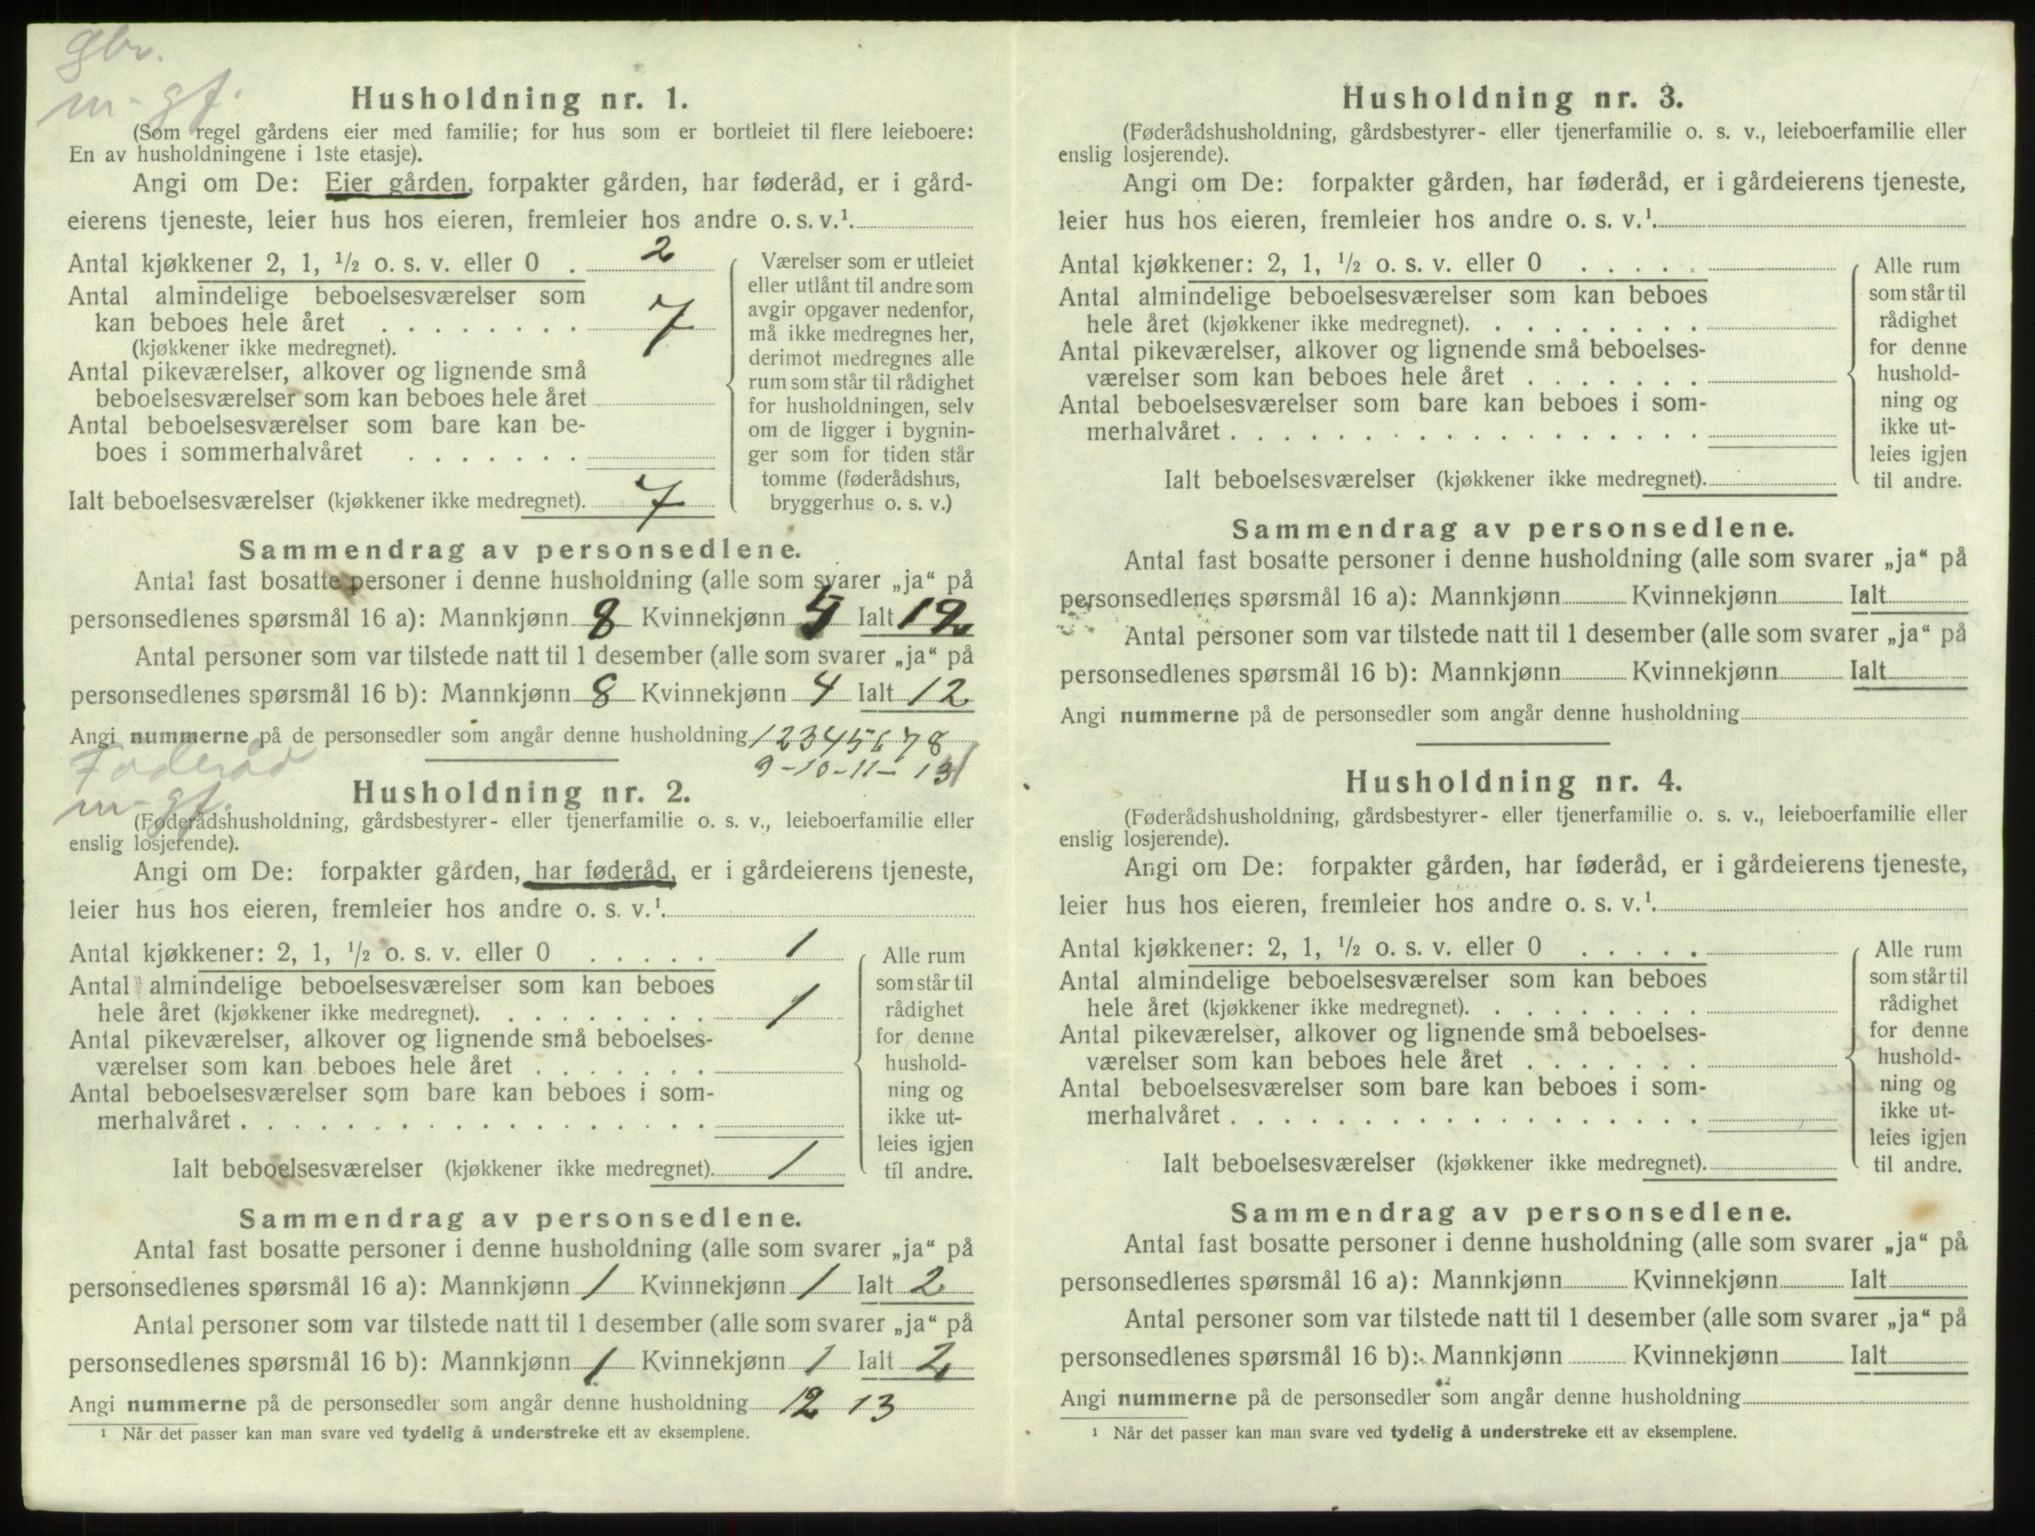 gbr.
m-gf.
Husholdning nr. 1.
(Som regel gårdens eier med familie; for hus som er bortleiet til flere leieboere:
En av husholdningene i 1ste etasje).
Angi om De: Eier gården, forpakter gården, har føderåd, er i gård-
eierens tjeneste, leier hus hos eieren, fremleier hos andre o. s. v.¹.
Antal kjøkkener 2, 1, ½ o. s. v. eller 0 . 2
Antal almindelige beboelsesværelser som
kan beboes hele året . . . . . . . . 7
(kjøkkener ikke medregnet).
Antal pikeværelser, alkover og lignende små
beboelsesværelser som kan beboes hele året
Antal beboelsesværelser som bare kan be-
boes i sommerhalvåret . . . . . . .
Ialt beboelsesværelser (kjøkkener ikke medregnet). 7
Værelser som er utleiet
eller utlånt til andre som
avgir opgaver nedenfor,
må ikke medregnes her,
derimot medregnes alle
rum som står til rådighet
for husholdningen, selv
om de ligger i bygnin-
ger som for tiden står
tomme (føderådshus,
bryggerhus o. s. v.)
Sammendrag av personsedlene.
Antal fast bosatte personer i denne husholdning (alle som svarer „ja“ på
personsedlenes spørsmål 16 a): Mannkjønn 8 Kvinnekjønn Ialt 12
Antal personer som var tilstede natt til 1 desember (alle som svarer „ja“ på
personsedlenes spørsmål 16 b): Mannkjønn 8 Kvinnekjønn 4 Ialt 12
Angi nummerne på de personsedler som angår denne husholdning 1 2 3 4 5 6 7 8
9-10-11-
Føderåd
m-gf.
Husholdning nr. 2.
(Føderådshusholdning, gårdsbestyrer- eller tjenerfamilie o. s. v., leieboerfamilie eller
enslig losjerende).
Angi om De: forpakter gården, har føderåd, er i gårdeierens tjeneste,
leier hus hos eieren, fremleier hos andre o. s. v.¹.
Antal kjøkkener: 2, 1, ½ o. s. v. eller 0 . . . . . 1
Antal almindelige beboelsesværelser som kan beboes
hele året (kjøkkener ikke medregnet). . . . . . . . . 1
Antal pikeværelser, alkover og lignende små beboelses-
værelser som kan beboes hele året . . . . . . .
Antal beboelsesværelser som bare kan beboes i som-
merhalvåret . . . . . . . . . . . . . . . . . .
Ialt beboelsesværelser (kjøkkener ikke medregnet). 1
Alle rum
som står til
rådighet
for denne
hushold-
ning og
ikke ut-
leies igjen
til andre.
Sammendrag av personsedlene.
Antal fast bosatte personer i denne husholdning (alle som svarer „ja“ på
personsedlenes spørsmål 16 a): Mannkjønn 1 Kvinnekjønn 1 Ialt 2
Antal personer som var tilstede natt til 1 desember (alle som svarer „ja“ på
personsedlenes spørsmål 16 b): Mannkjønn 1 Kvinnekjønn 1 Ialt 2
Angi nummerne på de personsedler som angår denne husholdning 12 13
¹ Når det passer kan man svare ved tydelig å understreke ett av eksemplene.
Husholdning nr. 3.
(Føderådshusholdning, gårdsbestyrer- eller tjenerfamilie o. s. v., leieboerfamilie eller
enslig losjerende).
Angi om De: forpakter gården, har føderåd, er i gårdeierens tjeneste,
leier hus hos eieren, fremleier hos andre o. s. v.¹.
Antal kjøkkener: 2, 1, ½ o. s. v. eller 0 . . . . .
Antal almindelige beboelsesværelser som kan beboes
hele året (kjøkkener ikke medregnet). . . . . . . . .
Antal pikeværelser, alkover og lignende små beboelses-
værelser som kan beboes hele året . . . . . . .
Antal beboelsesværelser som bare kan beboes i som-
merhalvåret . . . . . . . . . . . . . . . . . .
Ialt beboelsesværelser (kjøkkener ikke medregnet).
Alle rum
som står til
rådighet
for denne
hushold-
ning og
ikke ut-
leies igjen
til andre.
Sammendrag av personsedlene.
Antal fast bosatte personer i denne husholdning (alle som svarer „ja“ på
personsedlenes spørsmål 16 a): Mannkjønn Kvinnekjønn Ialt
Antal personer som var tilstede natt til 1 desember (alle som svarer „ja“ på
personsedlenes spørsmål 16 b): Mannkjønn Kvinnekjønn Ialt
Angi nummerne på de personsedler som angår denne husholdning
Husholdning nr. 4.
(Føderådshusholdning, gårdsbestyrer- eller tjenerfamilie o. s. v., leieboerfamilie eller
enslig losjerende).
Angi om De: forpakter gården, har føderåd, er i gårdeierens tjeneste,
leier hus hos eieren, fremleier hos andre o. s. v.¹.
Antal kjøkkener: 2, 1, ½ o. s. v. eller 0 . . . . .
Antal almindelige beboelsesværelser som kan beboes
hele året (kjøkkener ikke medregnet). . . . . . . . .
Antal pikeværelser, alkover og lignende små beboelses-
værelser som kan beboes hele året . . . . . . .
Antal beboelsesværelser som bare kan beboes i som-
merhalvåret . . . . . . . . . . . . . . . . . .
Ialt beboelsesværelser (kjøkkener ikke medregnet).
Alle rum
som står til
rådighet
for denne
hushold-
ning og
ikke ut-
leies igjen
til andre.
Sammendrag av personsedlene.
Antal fast bosatte personer i denne husholdning (alle som svarer „ja“ på
personsedlenes spørsmål 16 a): Mannkjønn Kvinnekjønn Ialt
Antal personer som var tilstede natt til 1 desember (alle som svarer „ja“ på
personsedlenes spørsmål 16 b): Mannkjønn Kvinnekjønn Ialt
Angi nummerne på de personsedler som angår denne husholdning
¹ Når det passer kan man svare ved tydelig å understreke ett av eksemplene.